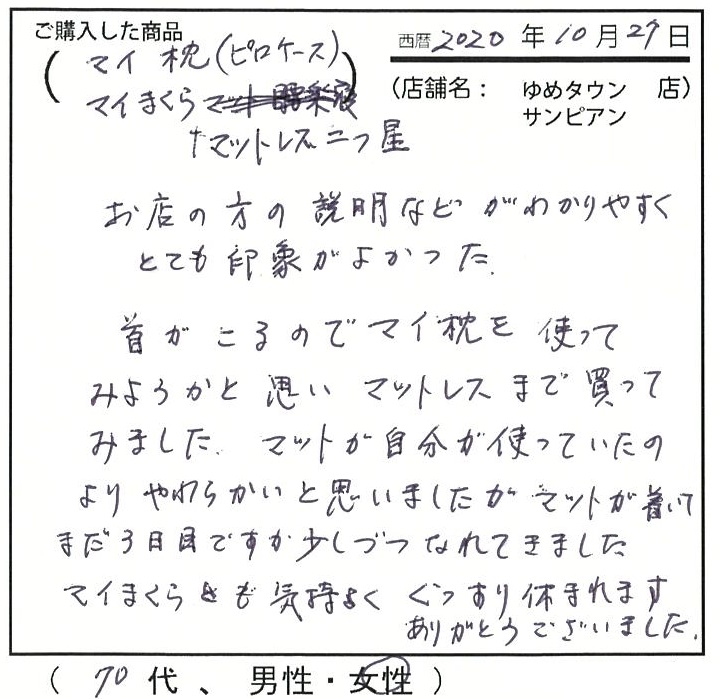 ご購入した商品
西暦 2020 年 10 月 27 日
(マイ 枕(ピロケース)
マイまくら
(店舗名： ゆめタウン 店)
サンピアン
マットレス二つ星
お店の方の説明などがわかりやすく
とても印象がよかった。
首がこるのでマイ枕を使って
みようかと思いマットレスまで買って
みました。マットが自分が使っていたの
よりやわらかいと思いましたがマットが着いて
まだ3日目ですか少しづつなれてきました
マイまくらも気持よくぐっすり休まれます
ありがとうございました。
(70代、男性・女性)